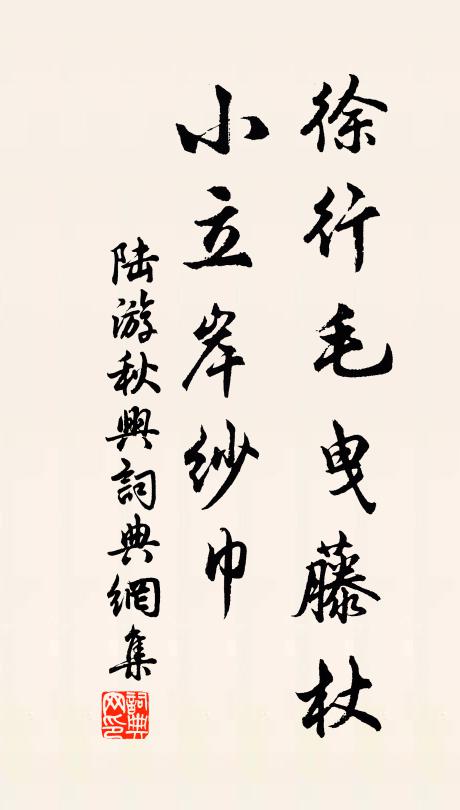 徐行毛曳藤杖
小立岸纱巾
陆游秋興詞典網集
詞典网印